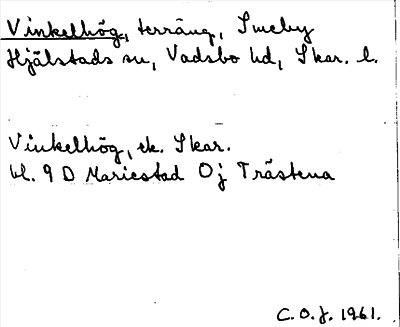 Vinkelhög, terräng, Smeby
Hjälstads sn, Vadsbo hd, Skar. l.
Vinkelhög, ek. Skar.
bl. 9 D Mariestad 0j Trästena
C.O.J. 1961.